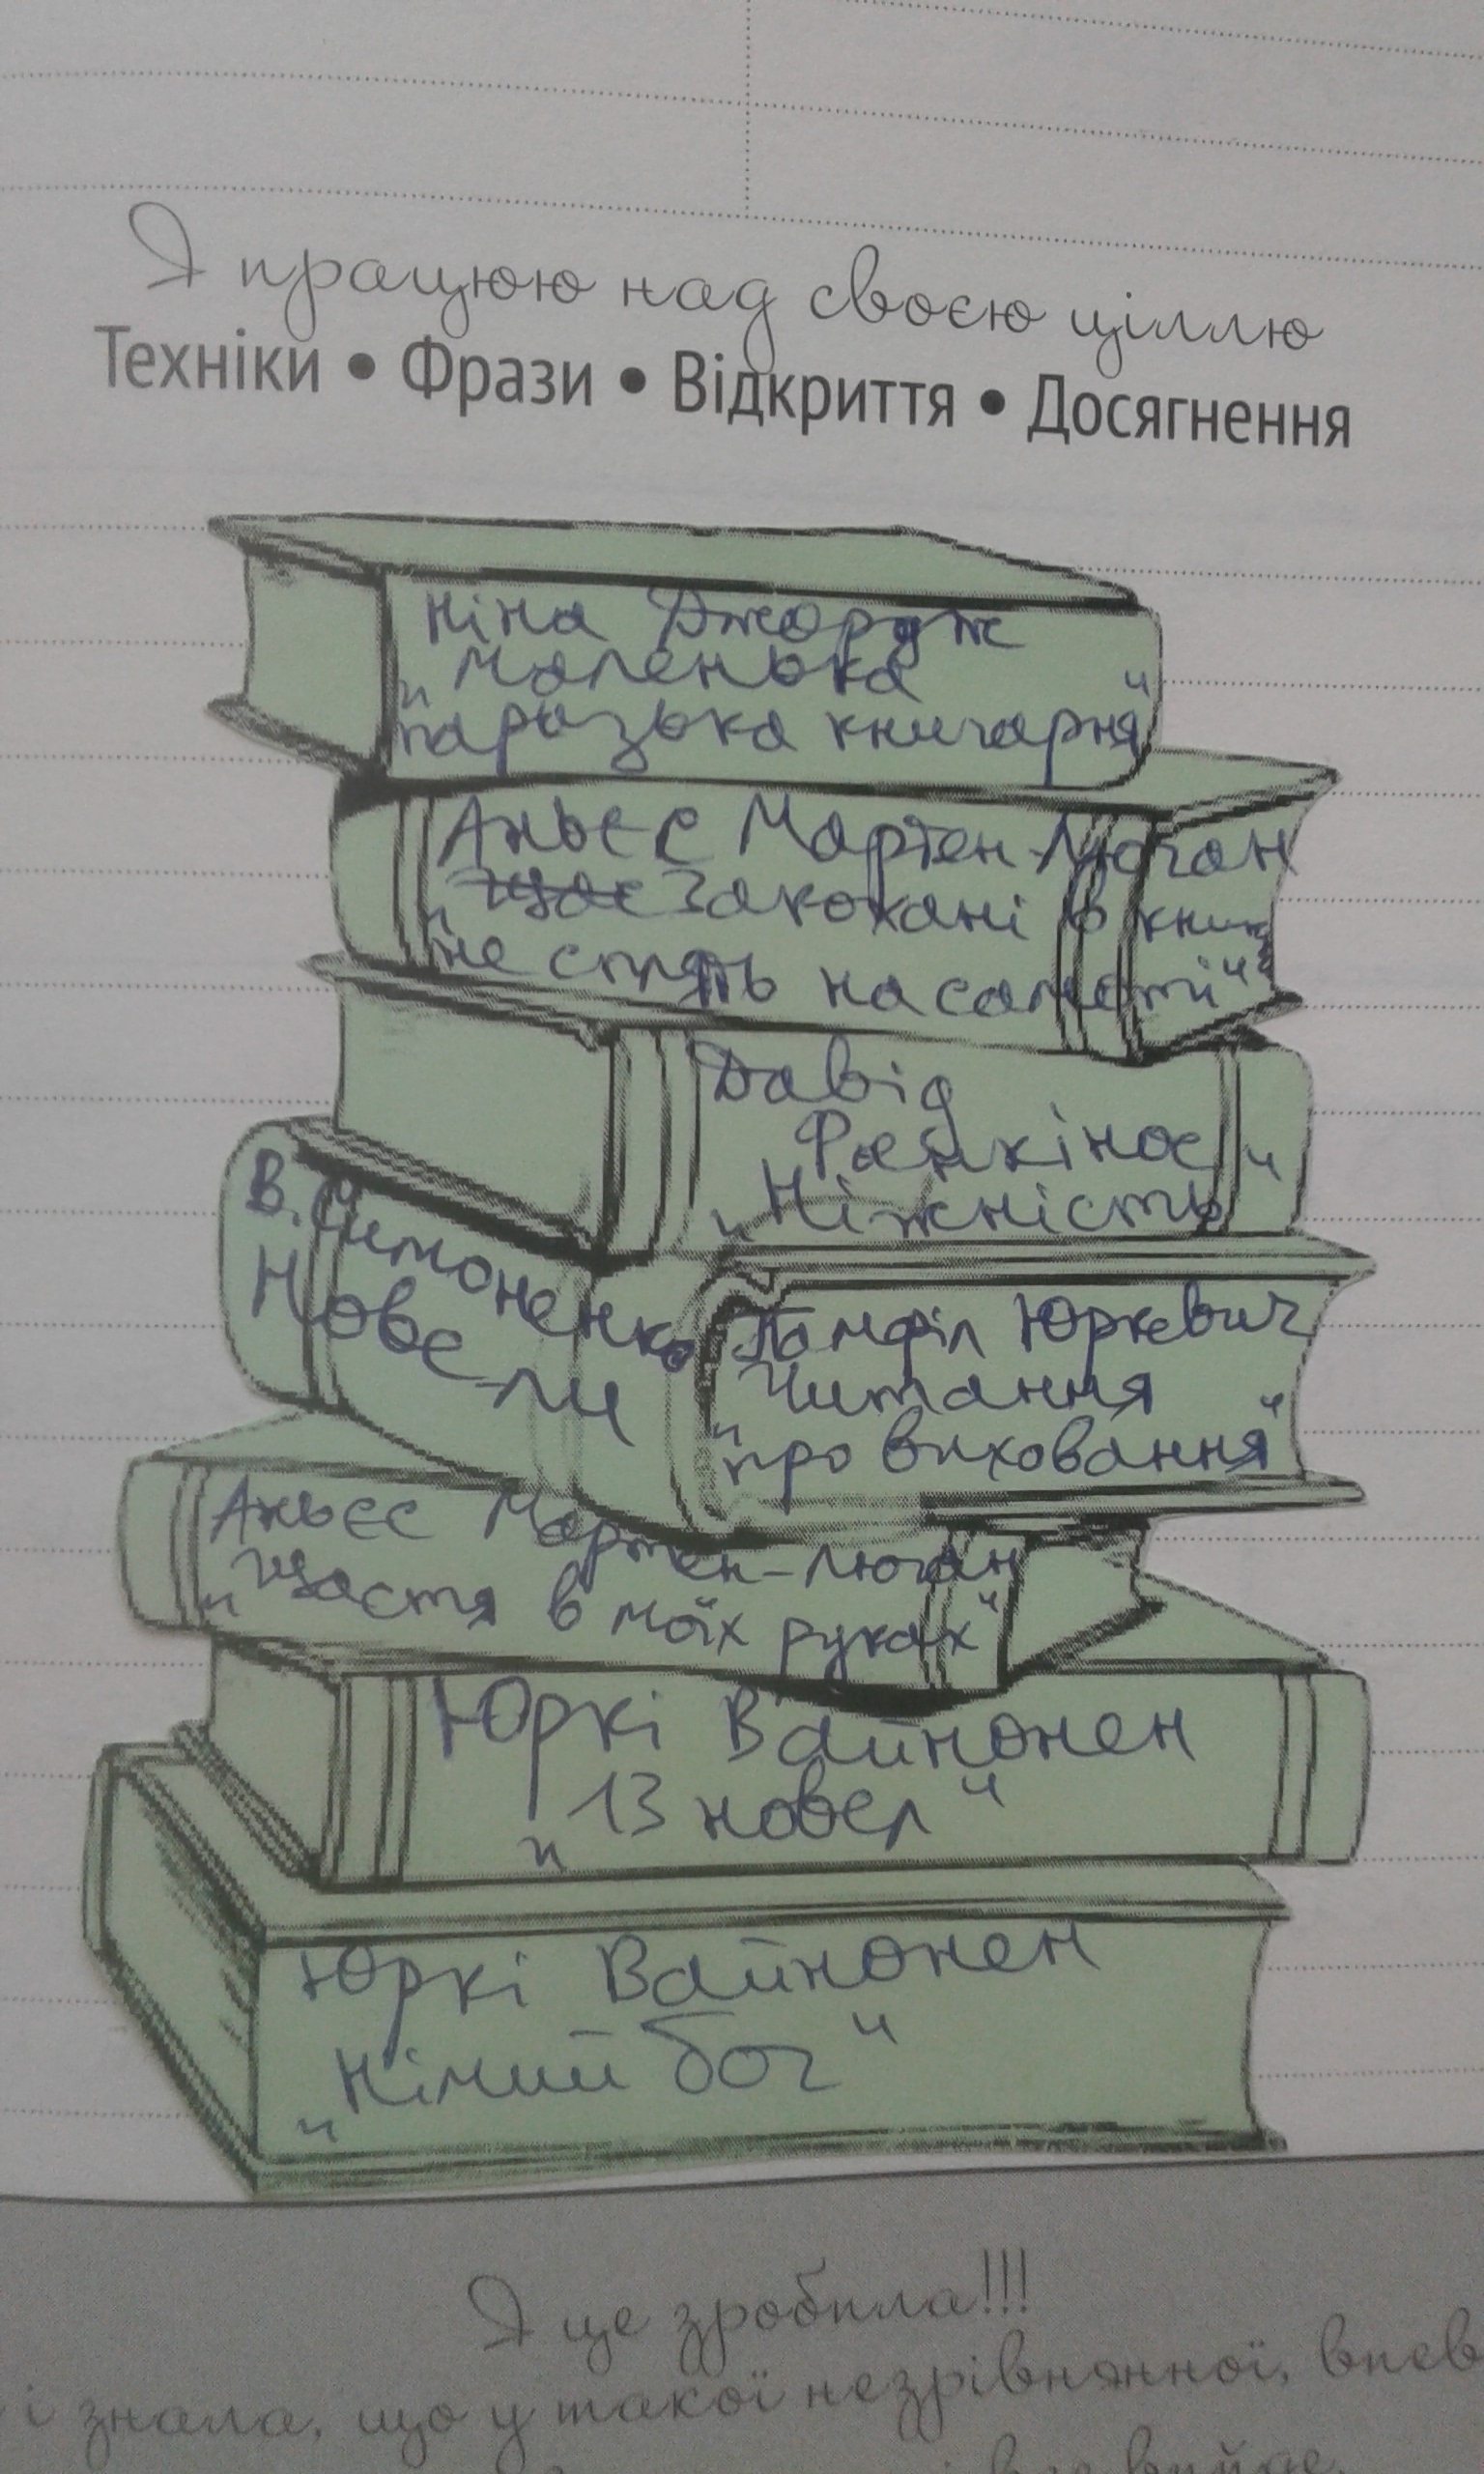 Я працюю над своєю ціллю
Техніки • Фрази • Відкриття • Досягнення
Ніна Джордж
„Маленька
паризька книгарня"
Аньєс Мартен-Люган
„Закохані в книги
не сплять на самоті"
Давід
Фоенкінос
„Ніжність"
В. Симоненко
Новели
Памфіл Юркевич
„Читання
про виховання"
Аньєс Мартен-Люган
„Щастя в моїх руках"
Юркі Вайнонен
„13 новел"
Юркі Вайнонен
„Німий бог"
Я це зробила!!!
і знала, що у такої незрівнянної, впев